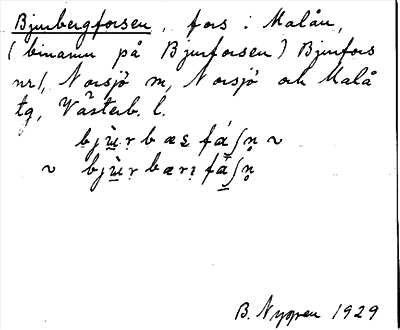 Bjurbergforsen, fors i Malån,
(binamn på Bjurforsen) Bjurfors
nr 1, Norsjö sn, Norsjö och Malå
tg, Västerb. l.
bjùr bæs fáʃn̥ ~
~ bjùr bærɪ fáʃn̥
B. Nygren 1929